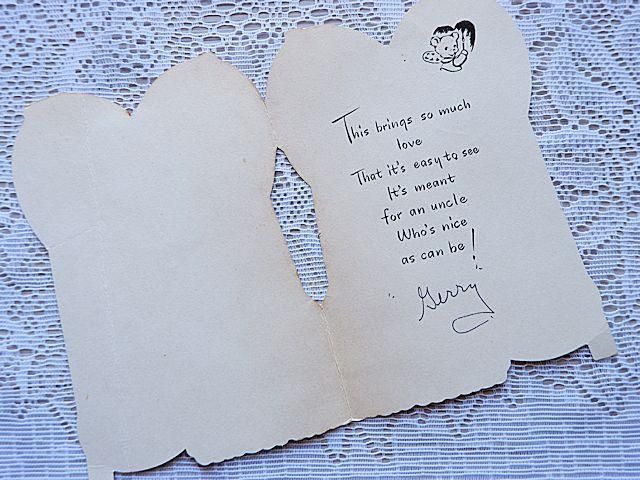 This brings so much
love
That it's easy to see
It's meant
for an uncle
Who's nice
as can be!
"Gerry"